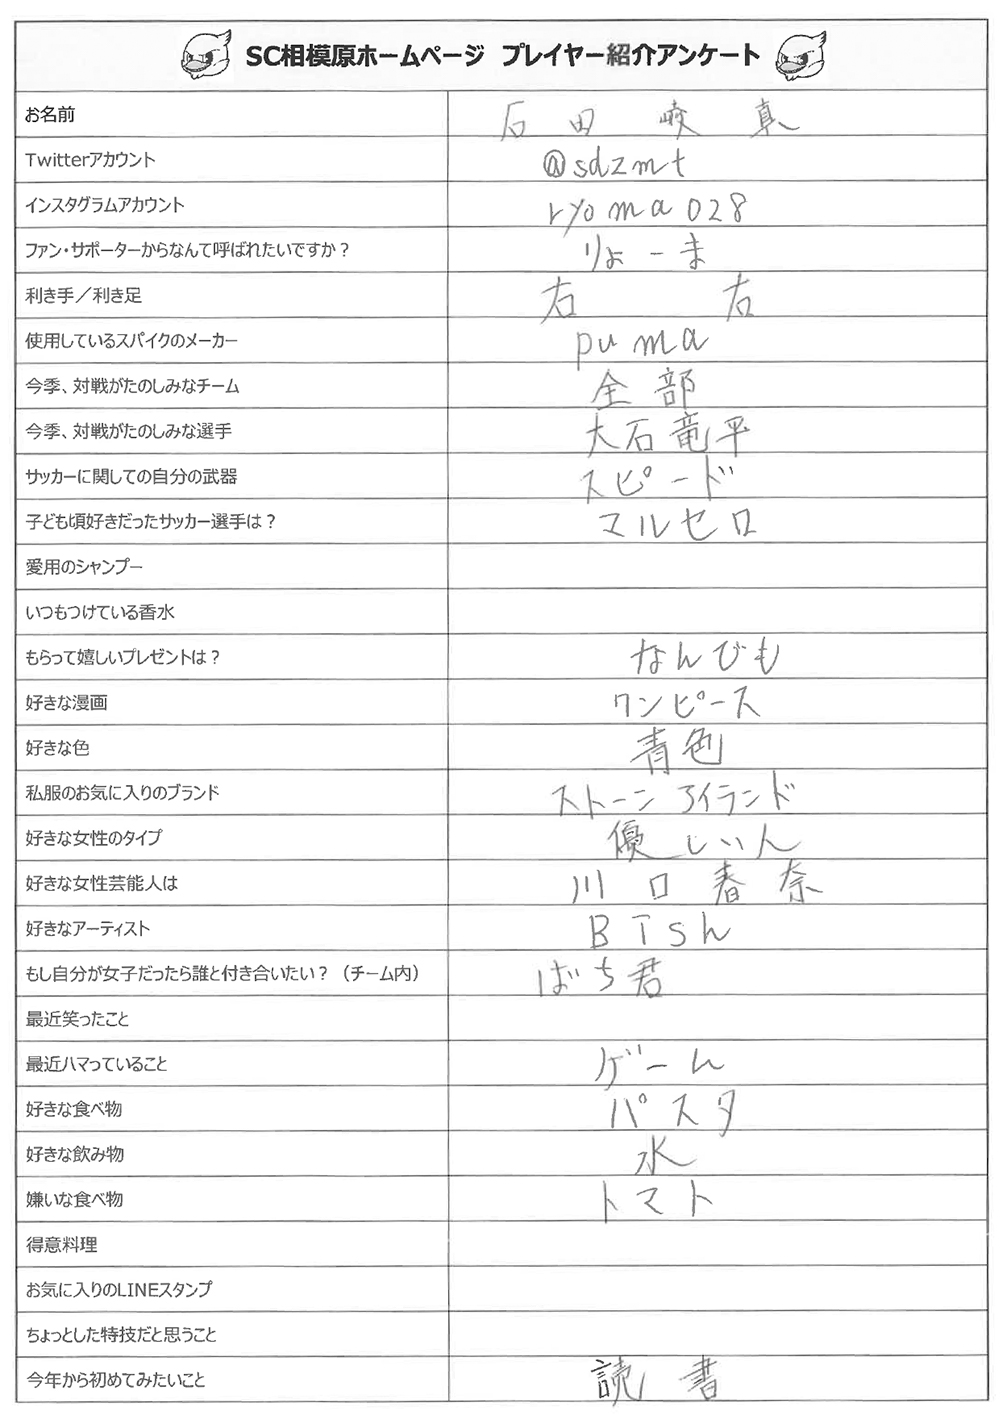 SC相模原ホームページ プレイヤー紹介アンケート
お名前 石田 崚真
Twitterアカウント @sdzmt
インスタグラムアカウント ryoma028
ファン・サポーターからなんて呼ばれたいですか？ りょーま
利き手／利き足 右 右
使用しているスパイクのメーカー puma
今季、対戦がたのしみなチーム 全部
今季、対戦がたのしみな選手 大石竜平
サッカーに関しての自分の武器 スピード
子ども頃好きだったサッカー選手は？ マルセロ
愛用のシャンプー
いつもつけている香水
もらって嬉しいプレゼントは？ なんでも
好きな漫画 ワンピース
好きな色 青色
私服のお気に入りのブランド ストーンアイランド
好きな女性のタイプ 優しい人
好きな女性芸能人は 川口春奈
好きなアーティスト BiSH
もし自分が女子だったら誰と付き合いたい？（チーム内） ばち君
最近笑ったこと
最近ハマっていること ゲーム
好きな食べ物 パスタ
好きな飲み物 水
嫌いな食べ物 トマト
得意料理
お気に入りのLINEスタンプ
ちょっとした特技だと思うこと
今年から初めてみたいこと 読書